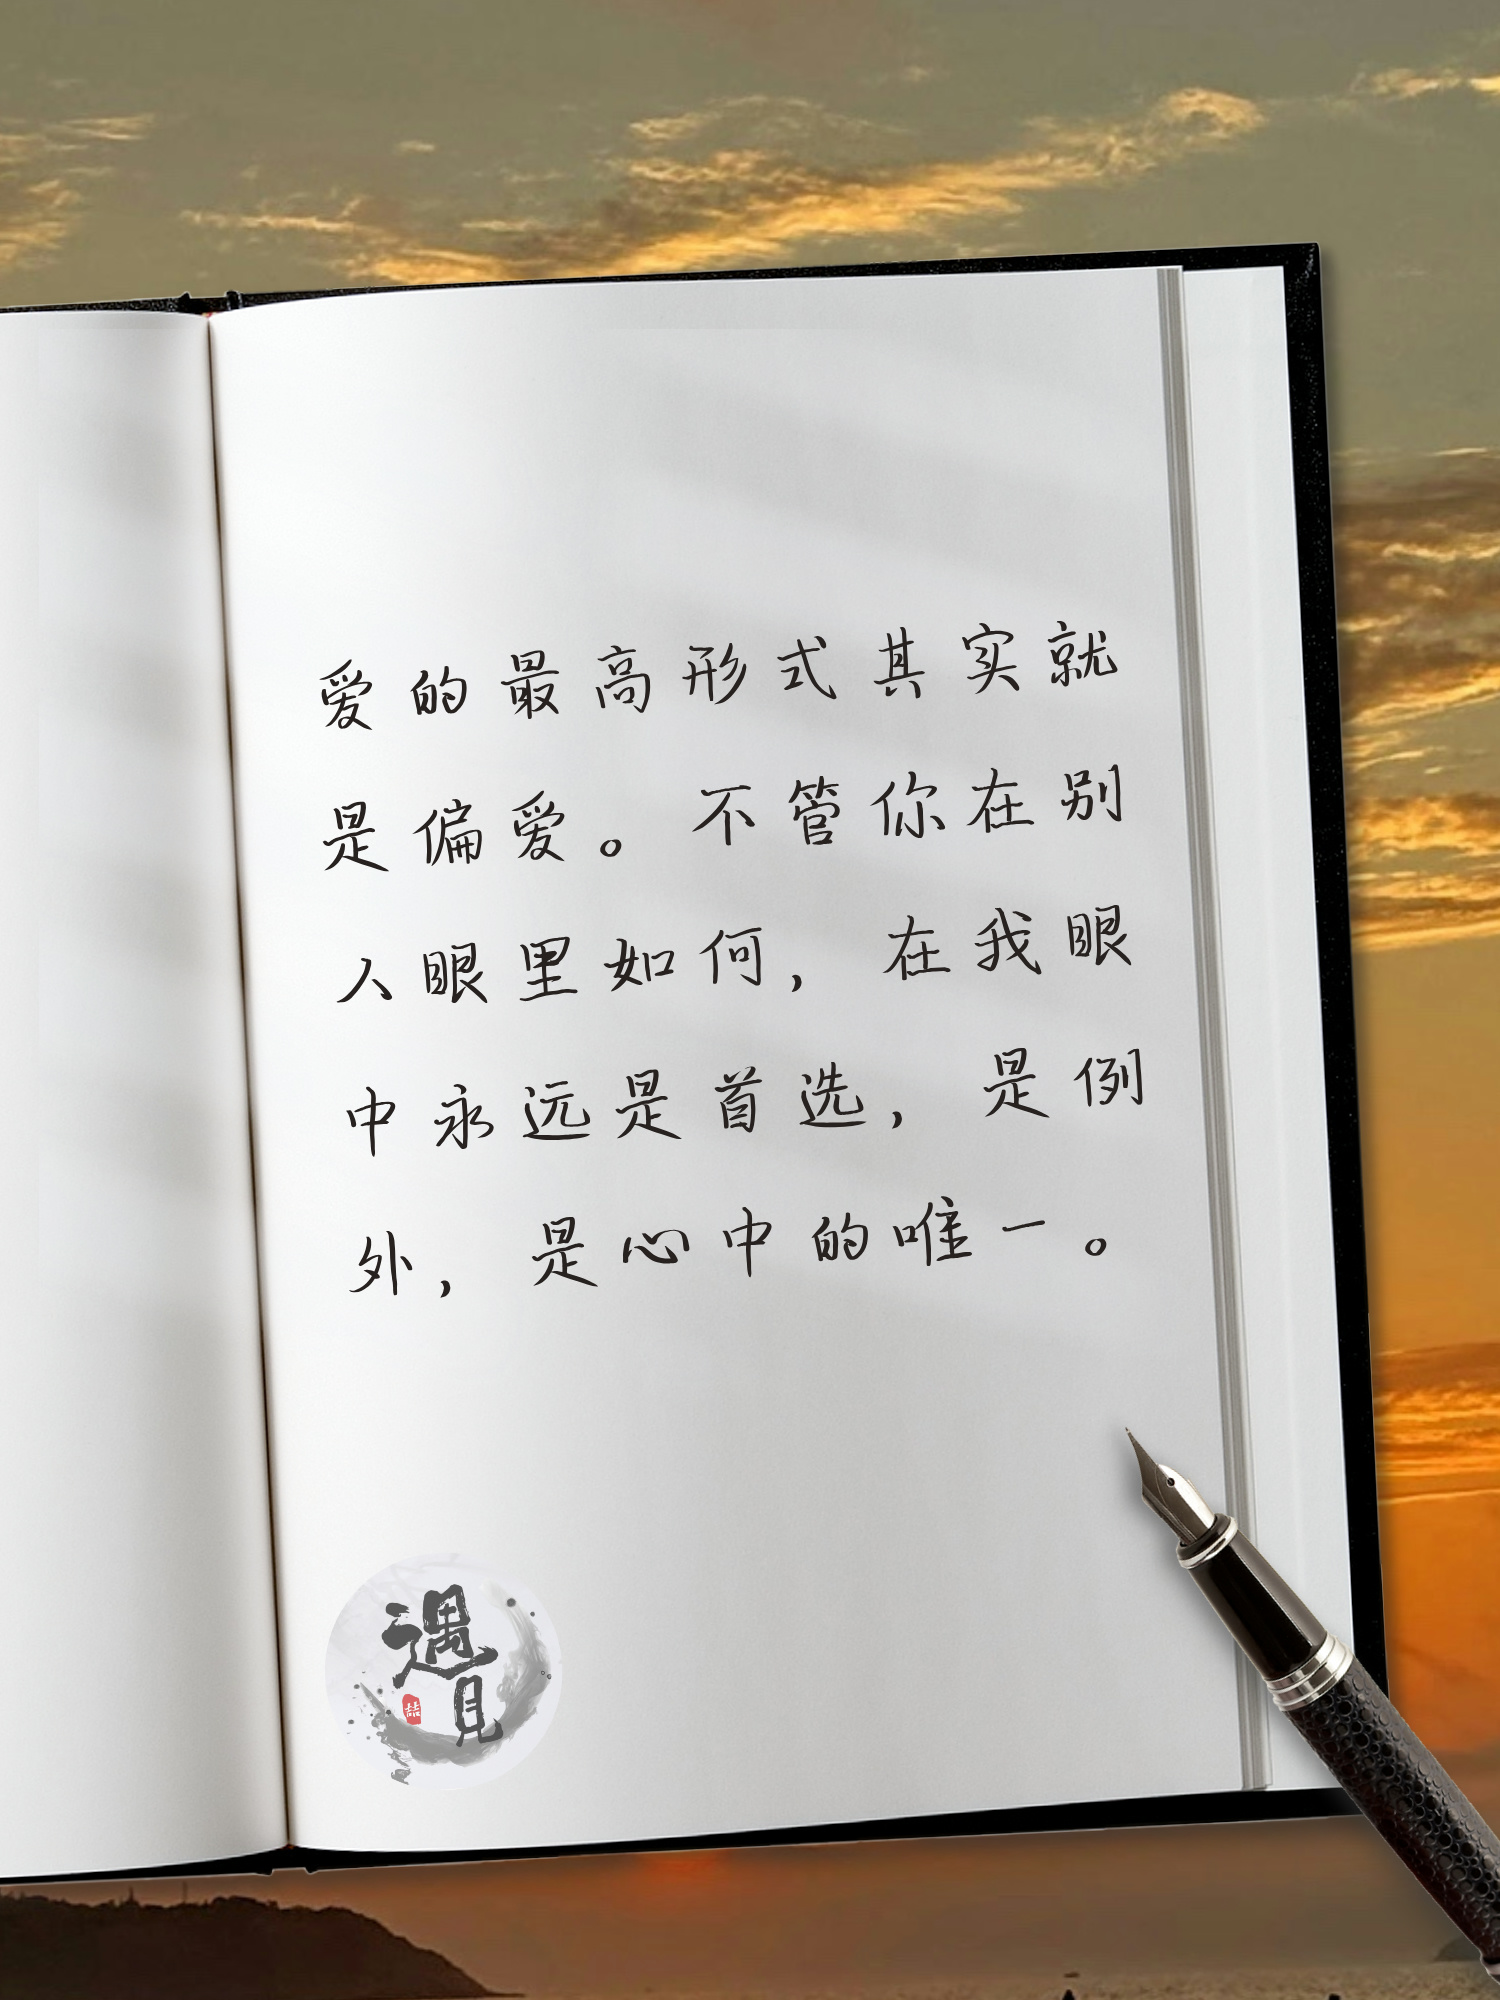 爱的最高形式其实就
是偏爱。不管你在别
人眼里如何，在我眼
中永远是首选，是例
外，是心中的唯一。
遇
见